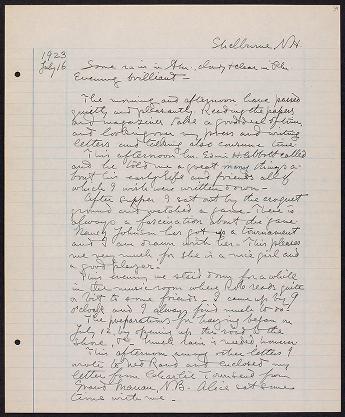 Shelburne, N.H.
1923
July 16 Some rain in A.m., cloudy & clear in P.m.
Evening brilliant –
The morning and afternoon have passed
quietly and pleasantly. Reading the papers
and magazines take a good deal of time,
and looking over my notes and writing
letters and talking also consume time
This afternoon Mr. Edwin H. Abbott called
and he told me a great many things a-
bout his early life and friends all of
which I wish were written down –
After supper I sat out by the croquet
ground and watched a game. There is
always a fascination about the game
Nancy Johnson has got up a tournament
and I am drawn with her. This pleases
me very much for she is a nice girl and
a good player.
This evening we staid down for a while
in the music room where Rob reads quite
a bit to some friends. I came up by 9
o'clock and I always find much to do.
The preparations for haying began on
July 12, by opening up the road to the
shore, Much rain is needed however
This afternoon among other letters I
wrote to Ned Rand and enclosed my
letter from Charlie Townsend from
Grand Manan, N.B. Alice sat some
time with me –